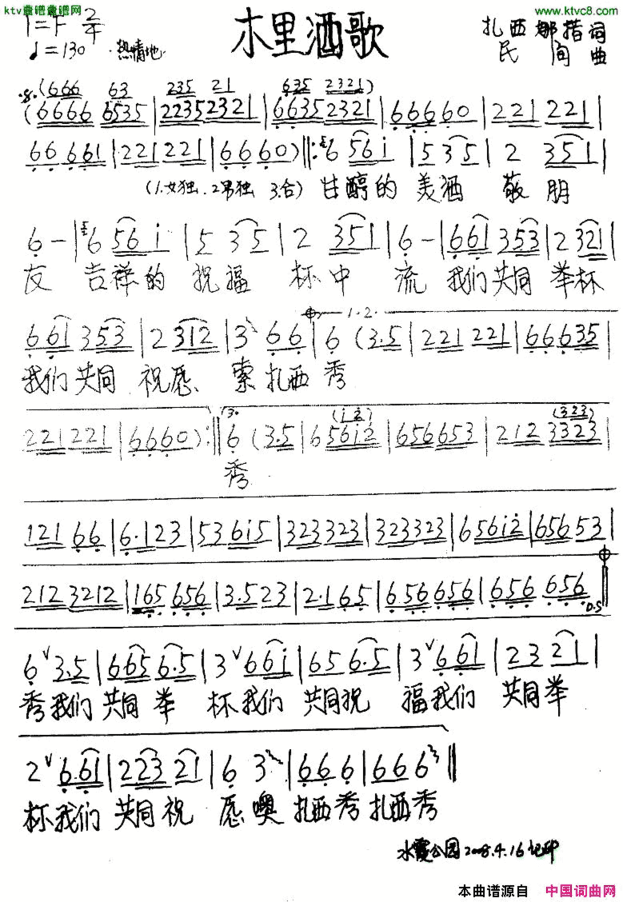 ktv曲谱曲谱网
www.ktvc8.com
ktvc8.com
www.ktvc8.com
1=F 2/4
♩=130 热情地
木里酒歌
扎西娜措 词
民间 曲
(666 63 235 21 635 2321)
(6666 6535|2235 2321|6635 2321|66660|221 221|
66 661|221 221|6660)‖: 6 56i|5 35|2 351|
(1.女独. 2.男独 3.合) 甘醇的 美酒 敬朋
6 -|6 56 i|5 35|2 351|6 -|661 353|2 321|
友 吉祥的 祝福 杯中 流 我们共同 举杯
1.2.
661 353|2 312|3 66|6 (3.5|221 221|66635|
我们共同 祝愿、 索 扎西 秀
3. (i2) (323)
221221|6660):‖6 (3.5|6 56i2|656653|212 3323|
秀
121 66|6.123|53 6i5|323323|323323|656i2|65653|
212 3212|165 656|3.523|2.165|656656|656 656‖
D.S
6 3.5|665 6.5|3 66i|65 6.5|3 661|23 21|
秀我们 共同 举 杯我们 共同祝 福我们 共同举
2 6.61|223 21|6 3|66 6|66 6‖
杯我们 共同 祝 愿噢 扎西秀扎西秀
2008.4.16
本曲谱源自 中国词曲网